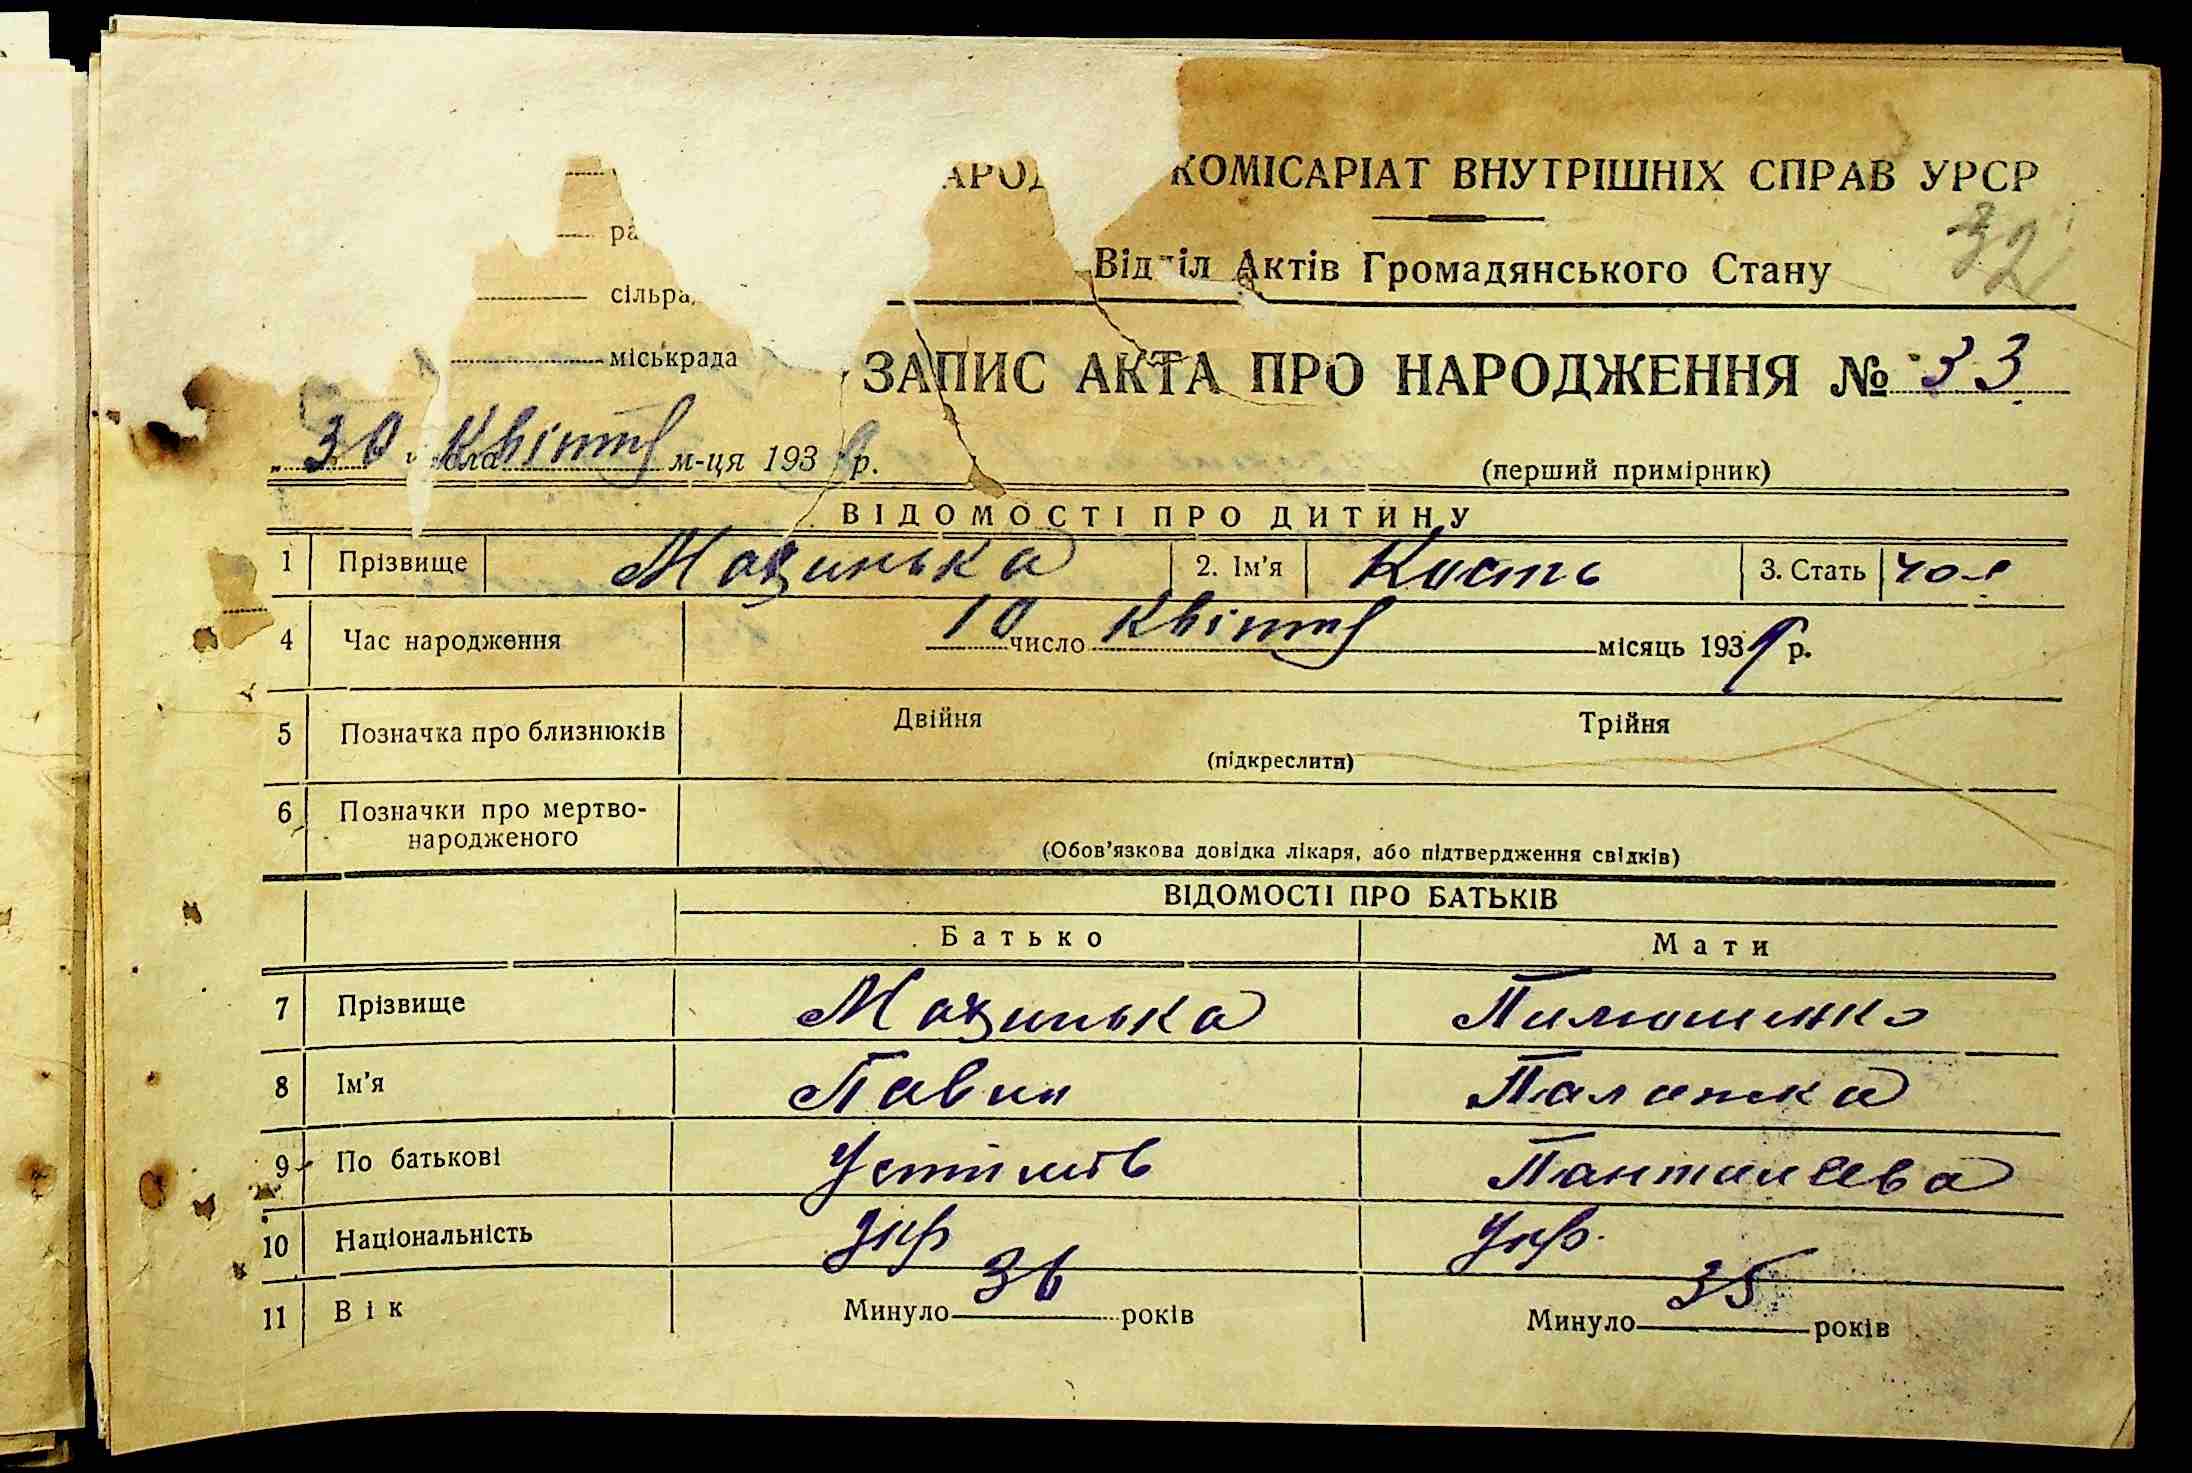 КОМІСАРІАТ ВНУТРІШНІХ СПРАВ УРСР
32
Відділ Актів Громадянського Стану
сільра
міськрада
ЗАПИС АКТА ПРО НАРОДЖЕННЯ № 33
„30" числа Квітня м-ця 193 р.
(перший примірник)
ВІДОМОСТІ ПРО ДИТИНУ
1 Прізвище Мазинька 2. Ім'я Кость 3. Стать чол
4 Час народження 10 число Квітня місяць 1939 р.
5 Позначка про близнюків Двійня Трійня
(підкреслити)
6 Позначки про мертво-
народженого
(Обов'язкова довідка лікаря, або підтвердження свідків)
ВІДОМОСТІ ПРО БАТЬКІВ
Батько Мати
7 Прізвище Мазинька Пилюшенко
8 Ім'я Павло Палажка
9 По батькові Устимів Пантилеева
10 Національність Укр Укр.
11 Вік Минуло 36 років Минуло 35 років